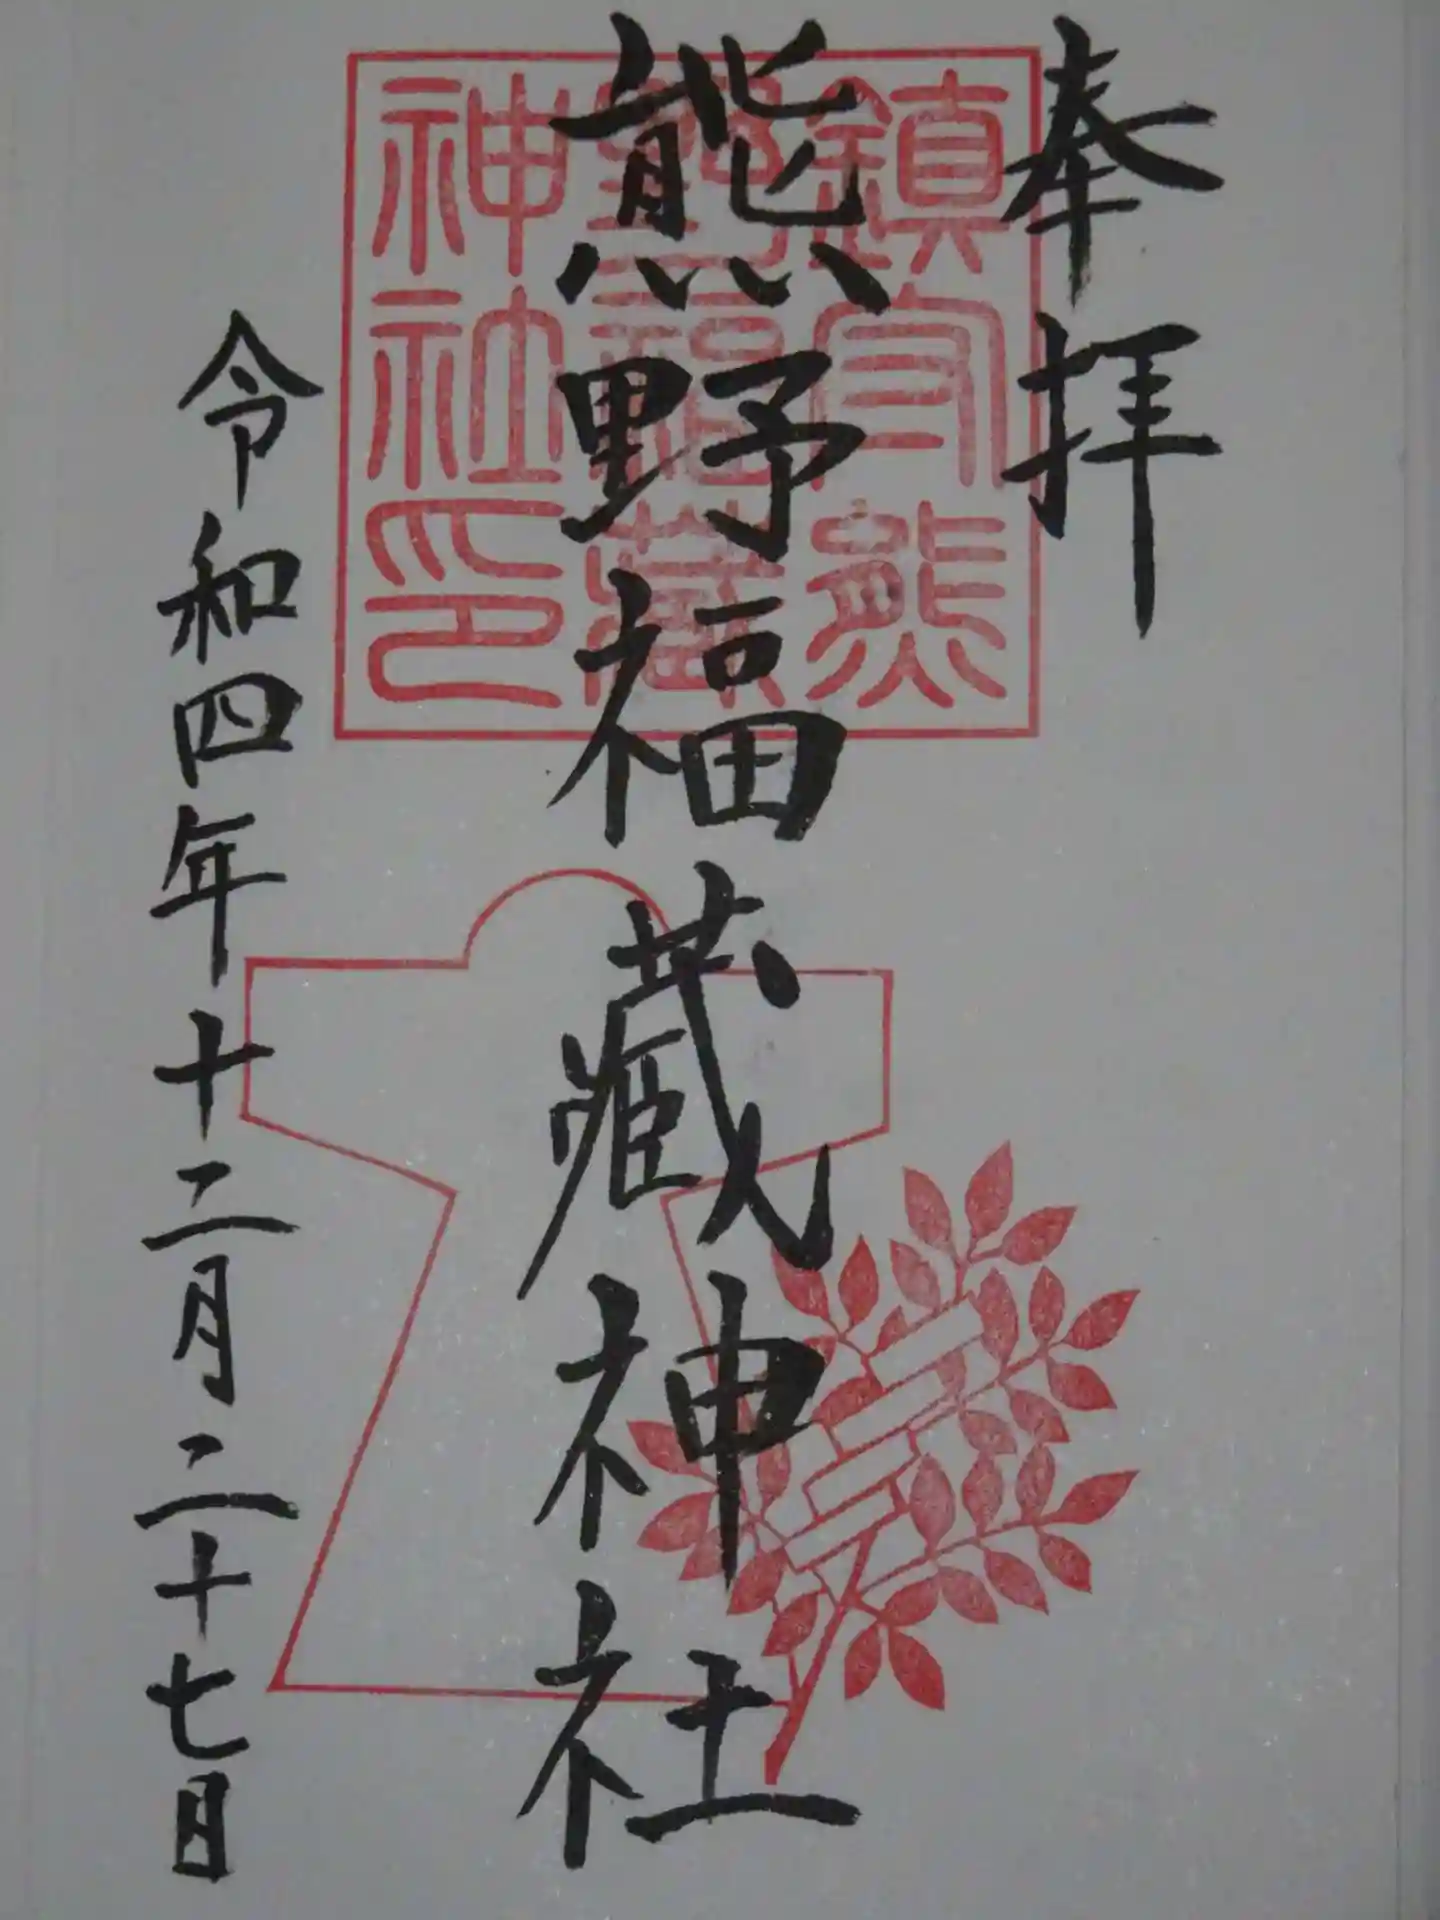 奉拝
鎮守熊
野福藏
神社印
熊野福藏神社
令和四年十二月二十七日